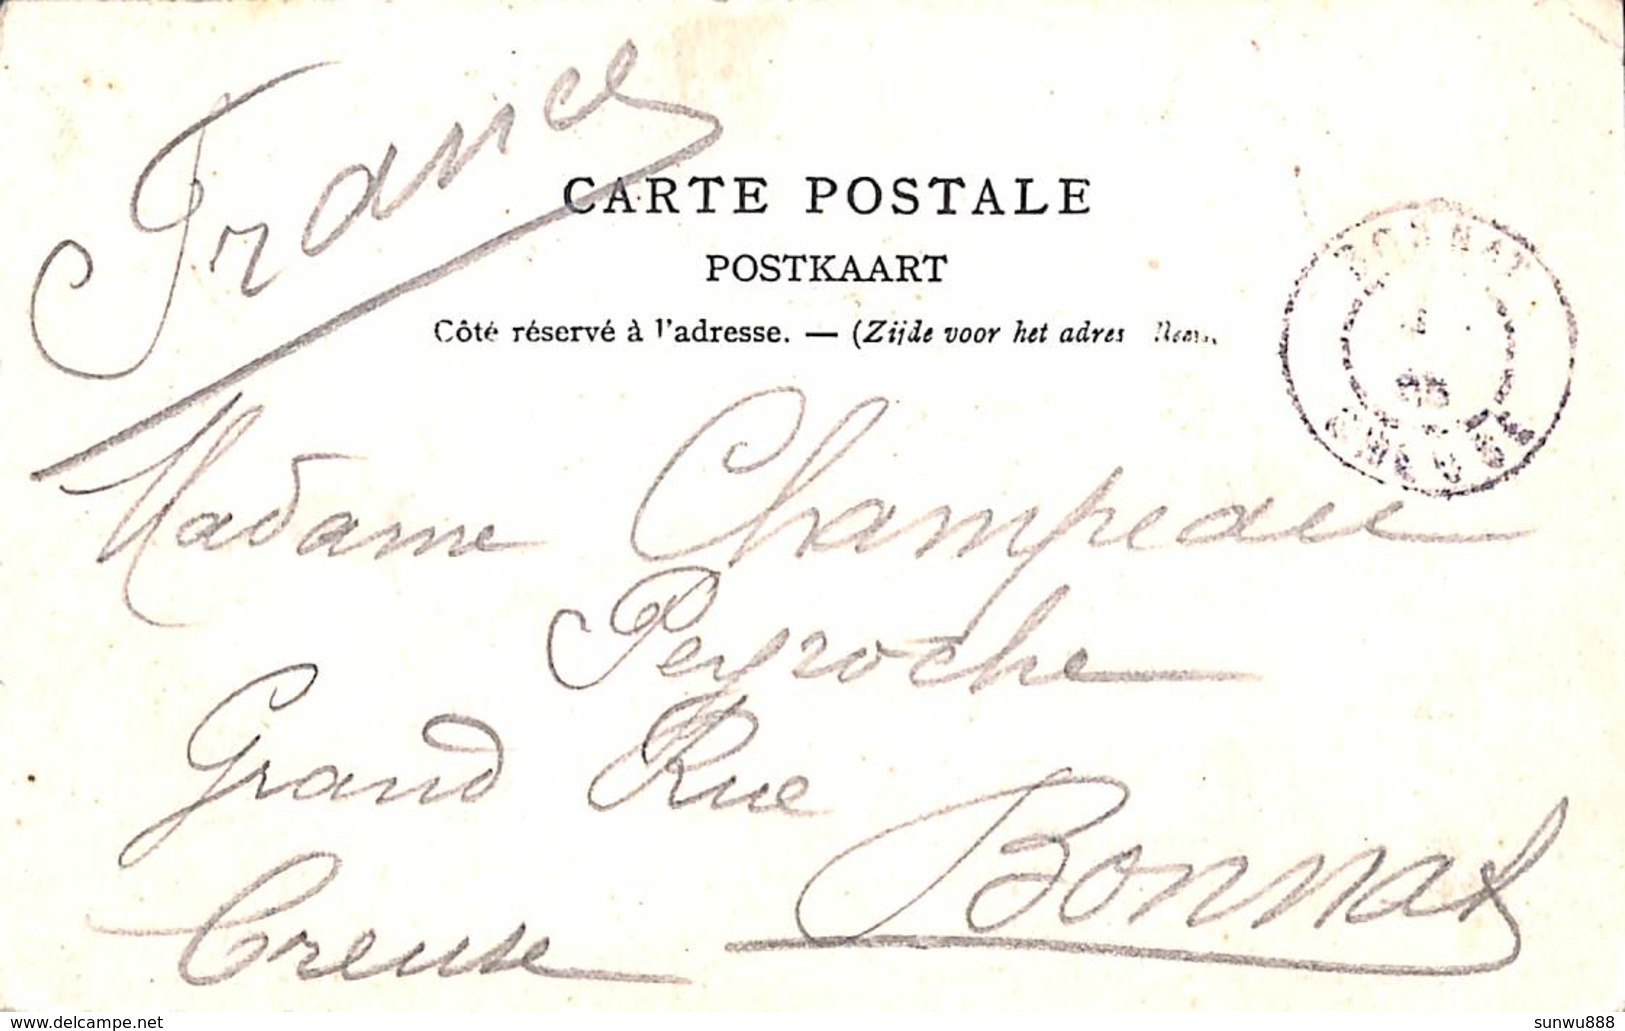 France
CARTE POSTALE
POSTKAART
Côté réservé à l'adresse. — (Zijde voor het adres
BONNAT
CREUSE
Madame Champeau
Peyroche
Grand Rue
Bonnat
Creuse
www.delcampe.net
sunwu888